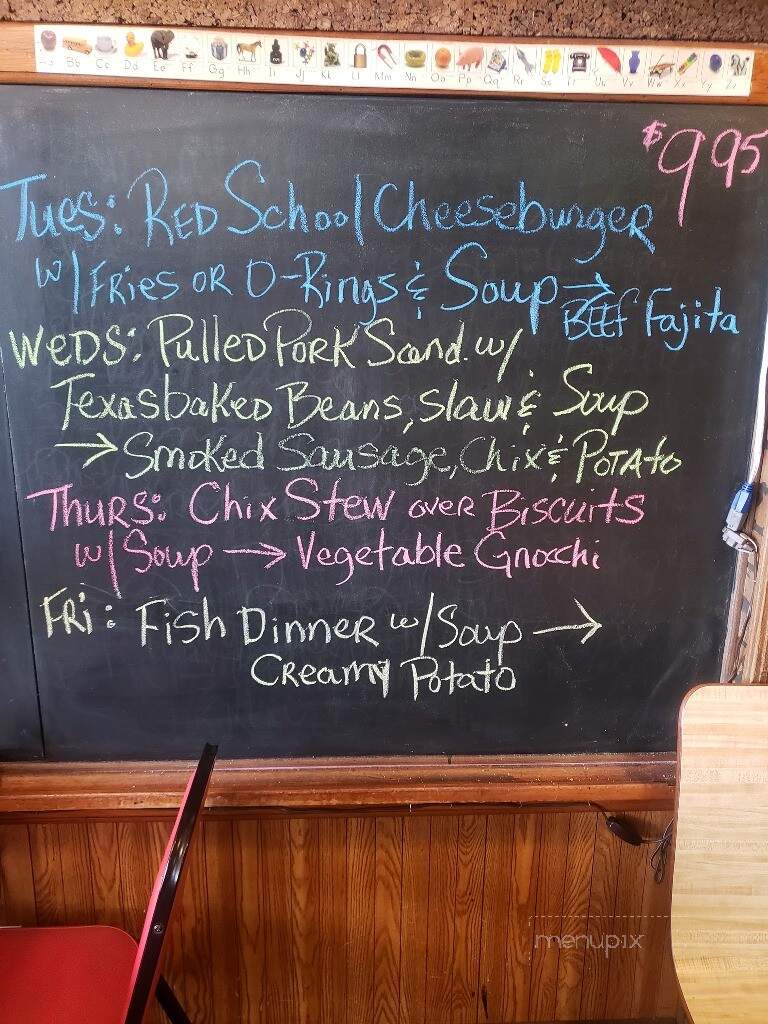 Aa Bb Cc Dd Ee Ff Gg Hh Ii Jj Kk Ll Mm Nn Oo Pp Qq Rr Ss Tt Uu Vv Ww Xx Yy Zz
$9.95
Tues: Red School Cheeseburger
w/ Fries or O-Rings & Soup →
Beef Fajita
Weds: Pulled Pork Sand. w/
Texas baked Beans, slaw & Soup
→ Smoked Sausage, Chix & Potato
Thurs: Chix Stew over Biscuits
w/ Soup → Vegetable Gnocchi
Fri: Fish Dinner w/ Soup →
Creamy Potato
menupix